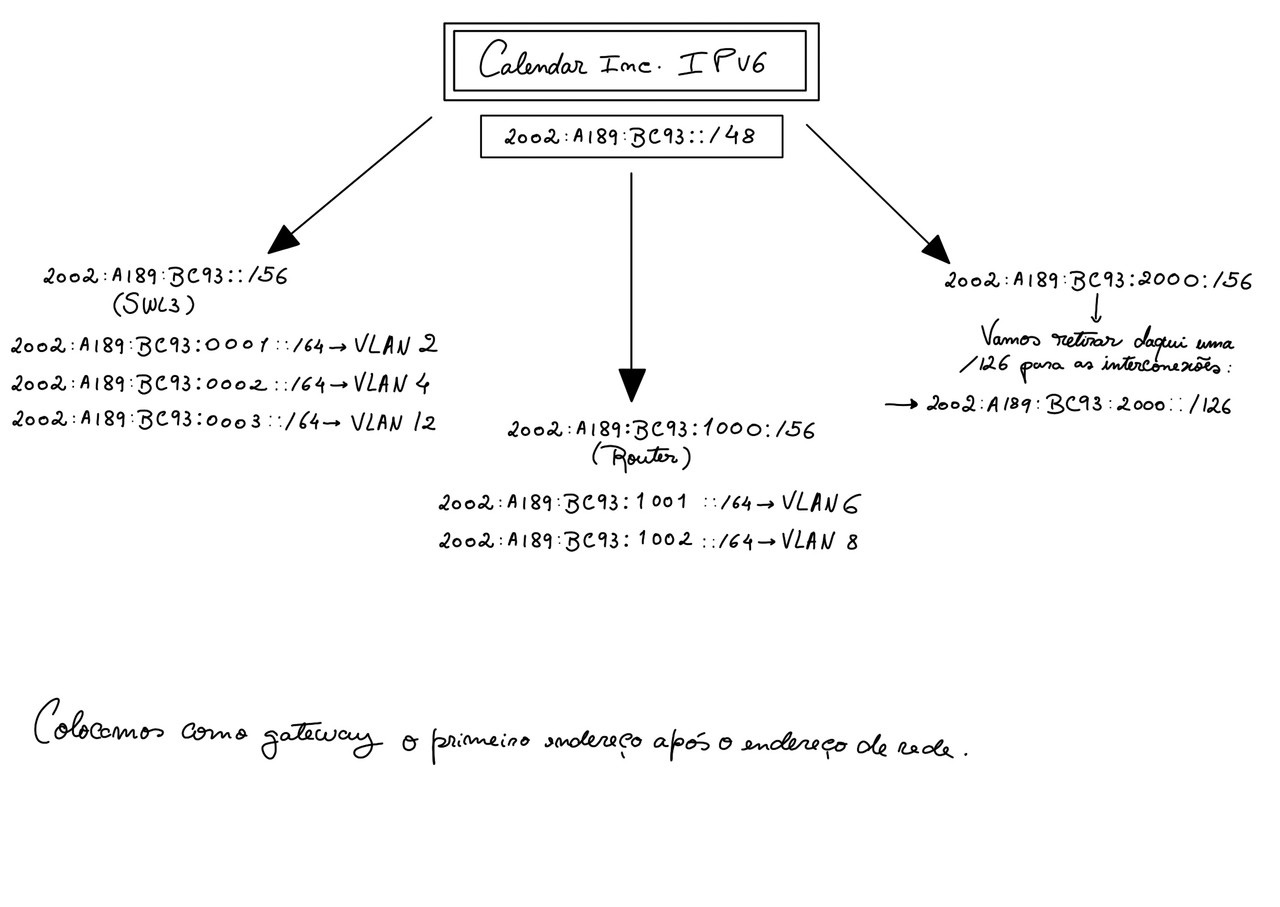 Calendar Inc. IPv6
2002:A189:BC93::/48
2002:A189:BC93::/56
(SWL3)
2002:A189:BC93:0001::/64→ VLAN 2
2002:A189:BC93:0002::/64→ VLAN 4
2002:A189:BC93:0003::/64→ VLAN 12
2002:A189:BC93:1000:/56
(Router)
2002:A189:BC93:1001 ::/64→ VLAN 6
2002:A189:BC93:1002 ::/64→ VLAN 8
2002:A189:BC93:2000:/56
Vamos retirar daqui uma
/126 para as interconexões:
→ 2002:A189:BC93:2000::/126
Colocamos como gateway o primeiro endereço após o endereço de rede.